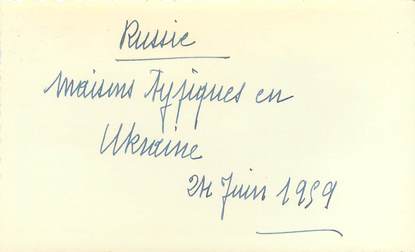 Russie
Maisons Typiques en
Ukraine
24 Juin 1959